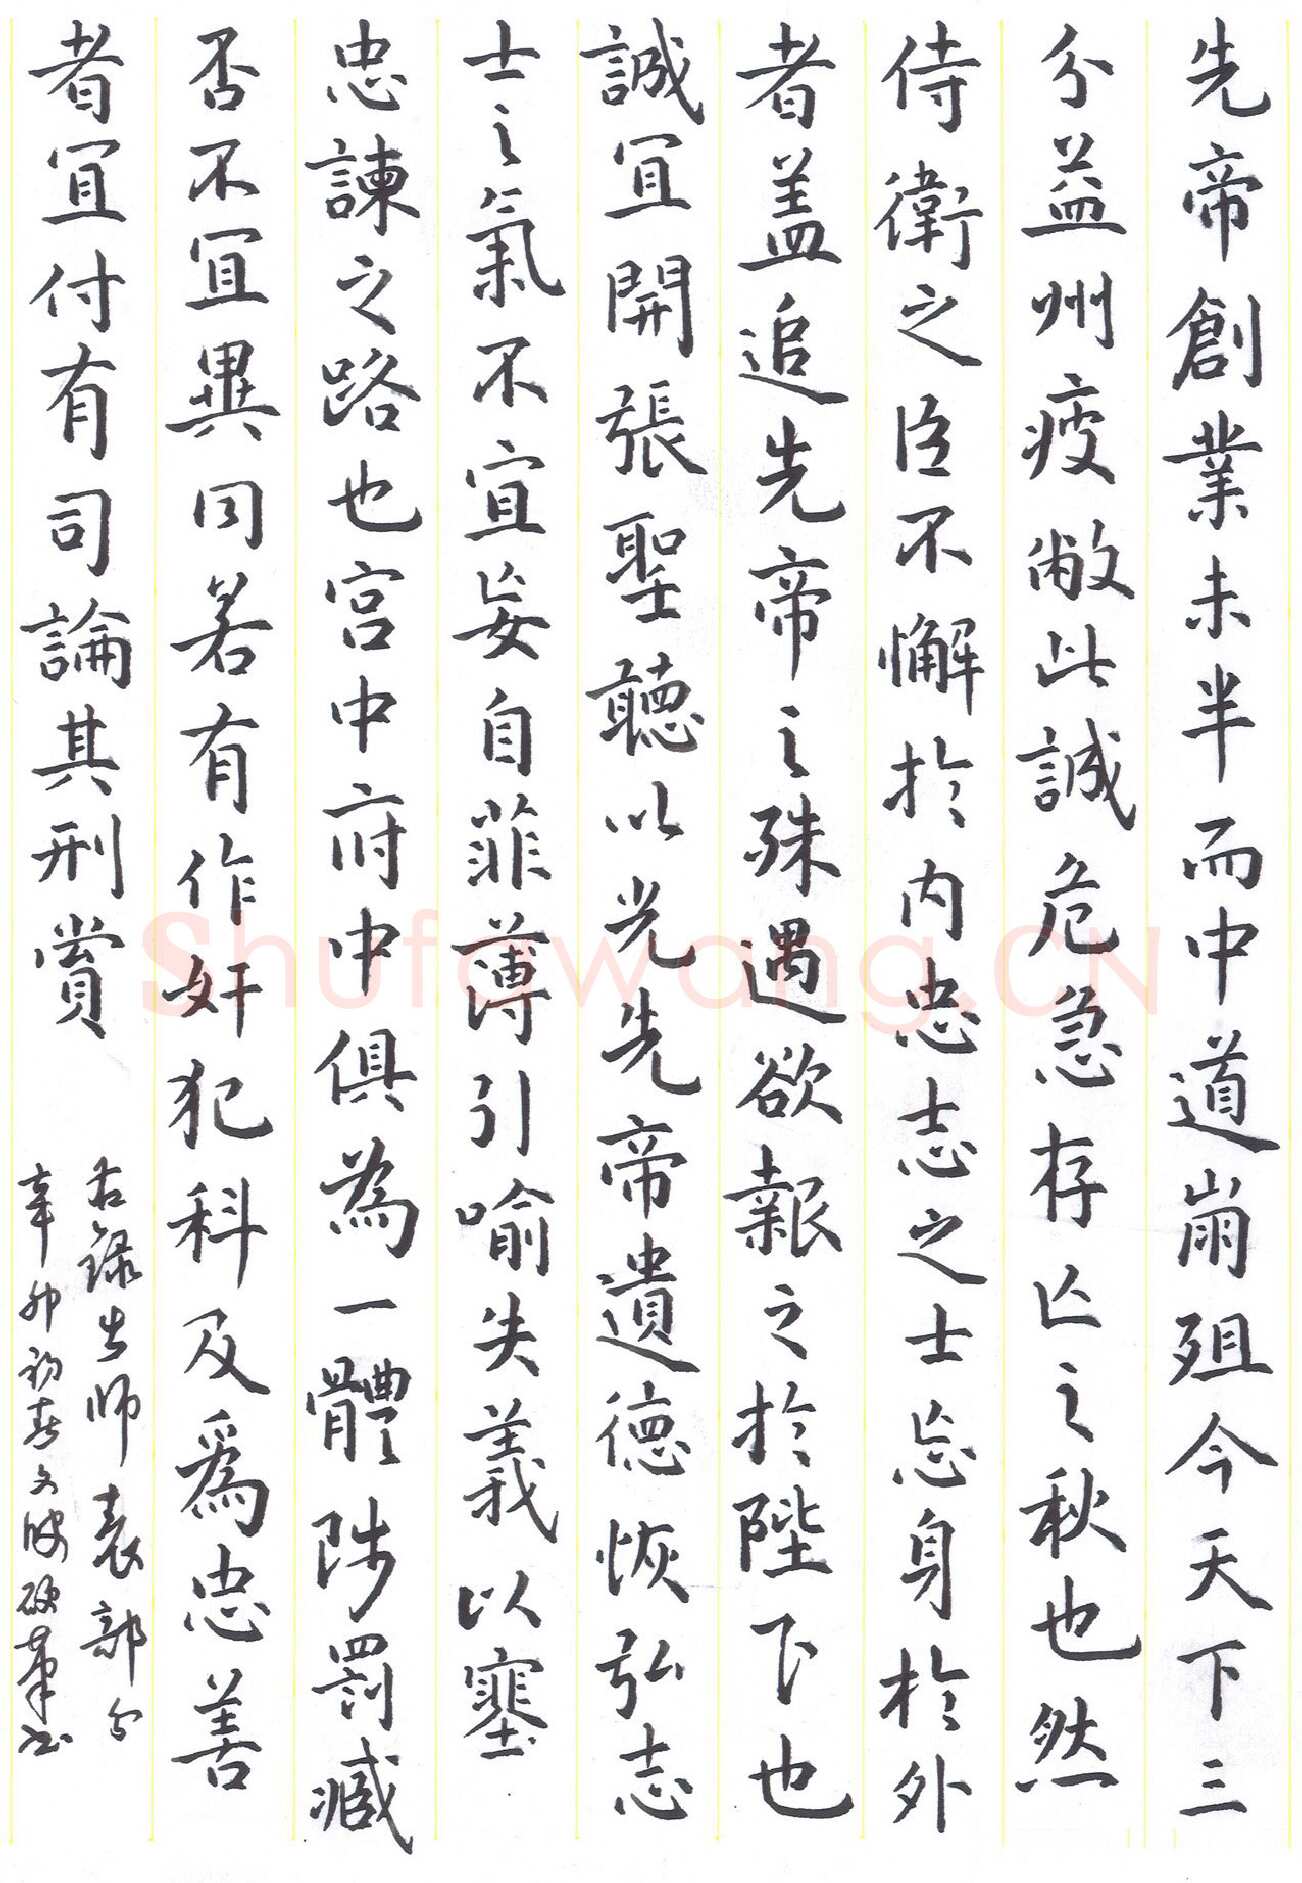 先帝創業未半而中道崩殂今天下三
分益州疲敝此誠危急存亡之秋也然
侍衛之臣不懈於內忠志之士忘身於外
者盖追先帝之殊遇欲報之於陛下也
誠宜開張聖聽以光先帝遺德恢弘志
士之氣不宜妄自菲薄引喻失義以塞
忠諫之路也宫中府中俱為一體陟罰臧
否不宜異同若有作奸犯科及爲忠善
者宜付有司論其刑賞
右録出師表部分
辛卯初春文波硬筆書
Shufawang.CN